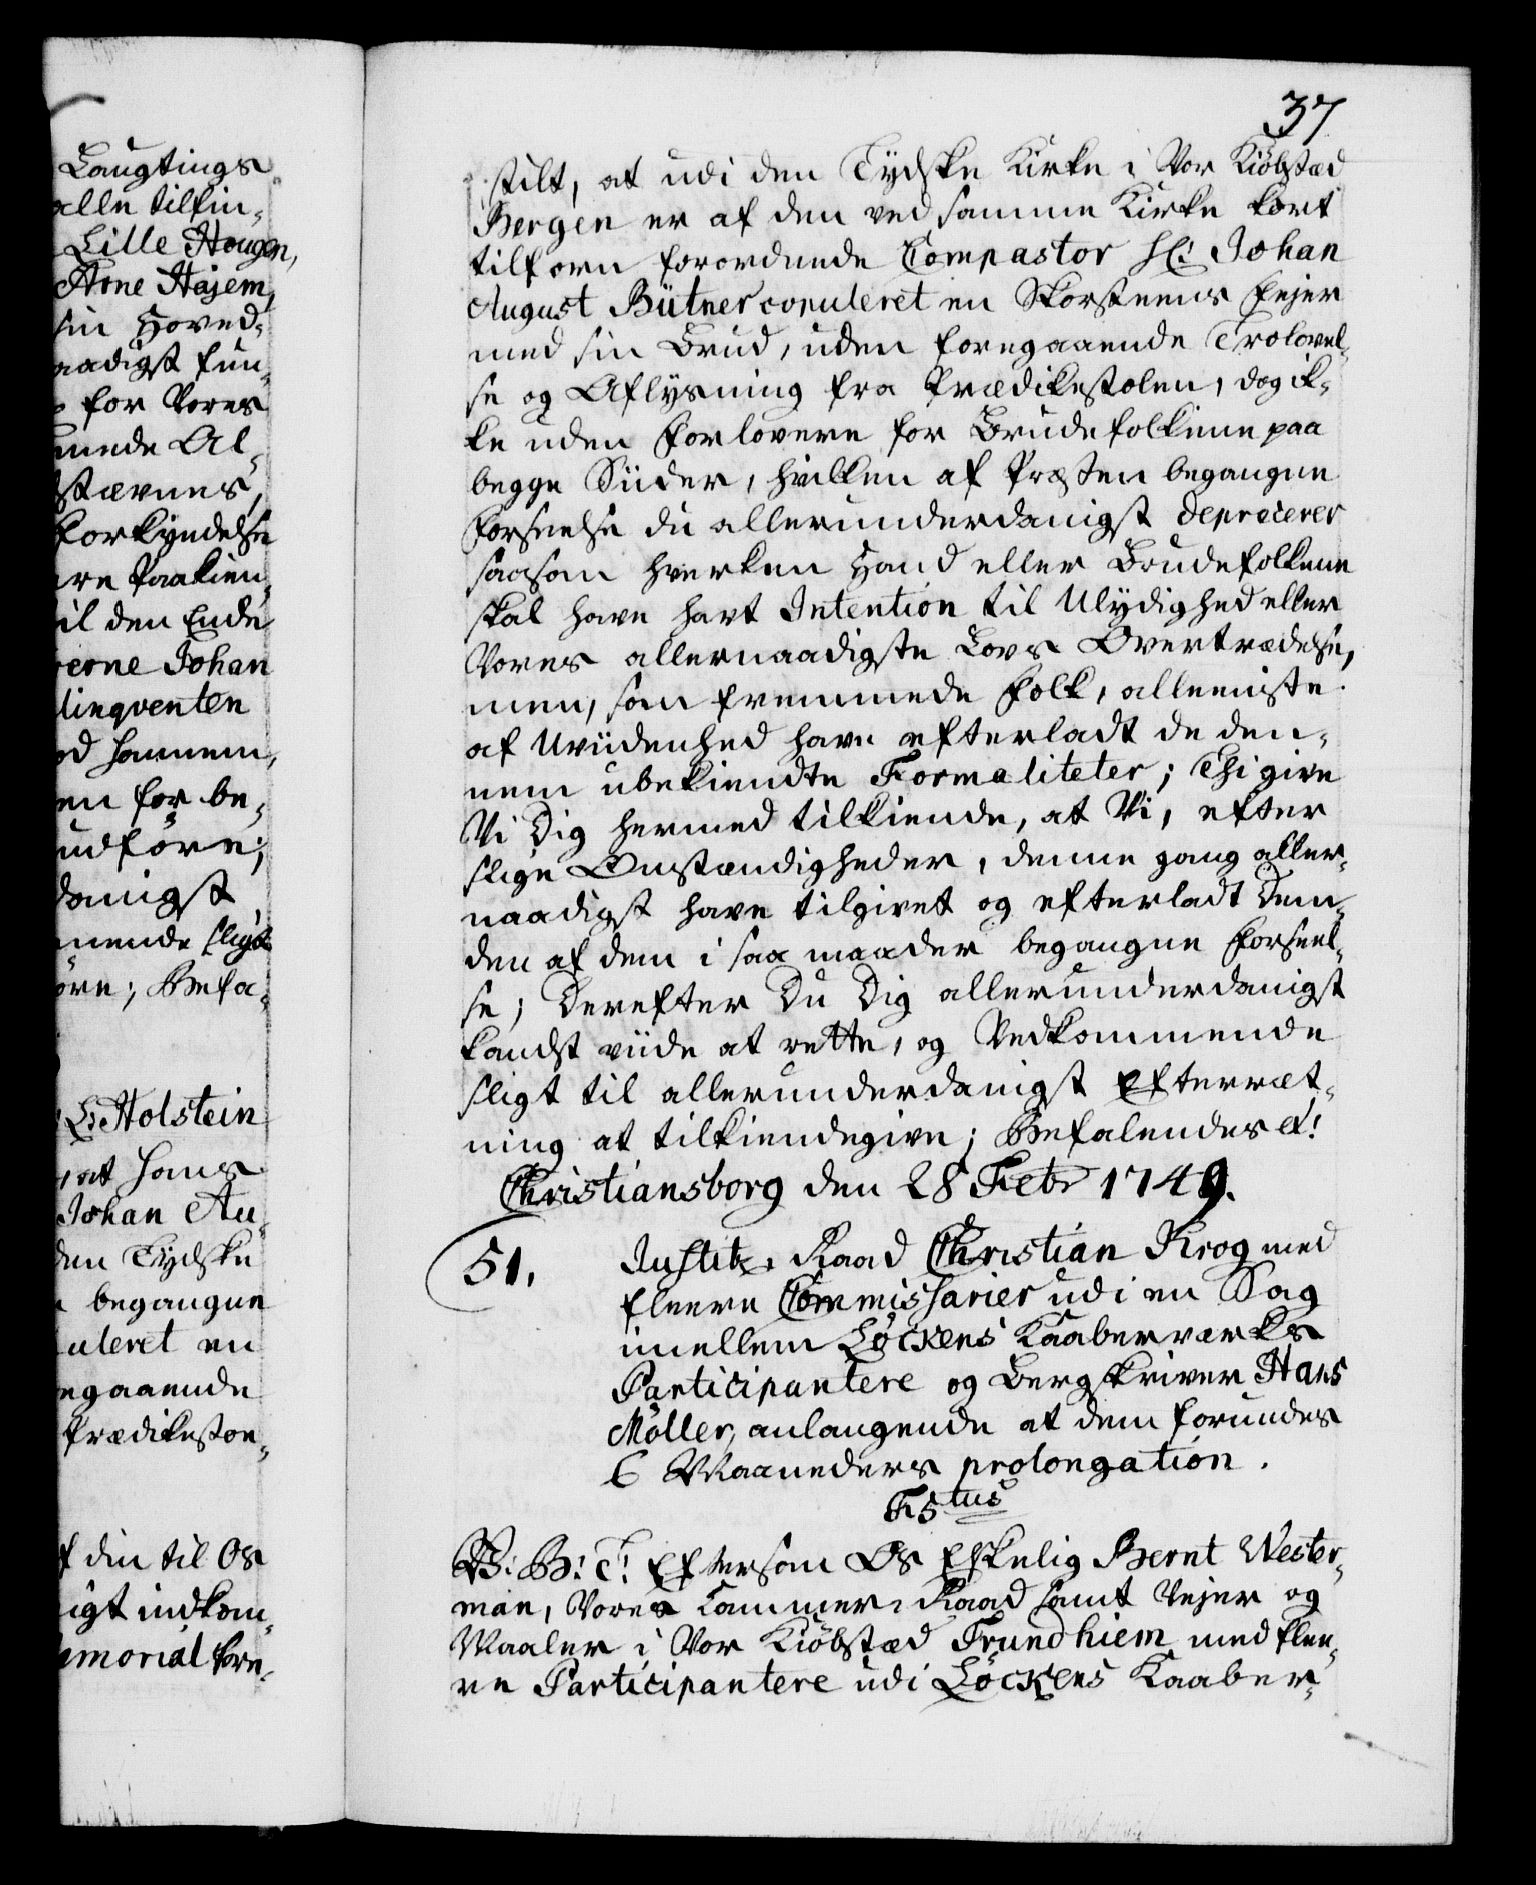 Laugtings
alle tilfin-
Lille Hougen,
Arne Hajem,
sin Hoved-
naadigst fun-
for Vores
mede Al-
stævnes,
forkyndelse
re Paakien-
il den Ende
erne Johan
linqventen
od hannem,
en for be-
udføre;
danigst
mende sligt
øre; Befa-
L: Holstein
at hans
Johan Au-
den Tydske
begangne
uleret en
egaaende
Prædikestoe-
f din til Os
igt indkom-
morial fore-
37
stilt, at udi den Tydske Kirke i Vor Kiøbstæd
Bergen er af den ved samme Kirke kort
tilforn forordnede Compastor Hr: Johan
August Bütner copuleret en Skorsteens Fejer
med sin Brud, uden foregaaende Trolovel-
se og Aflysning fra Prædikestolen, dog ik-
ke uden Forlovere for Brudefolkene paa
begge Siider, hvilken af Præsten begangne
Forseelse du allerunderdanigst deprecerer
saasom hverken Hand eller Brudefolkene
skal have havt Intention til Ulydighed eller
Vores allernaadigste Lovs Overtrædelse,
men, som fremmede Folk, alleeniste
af Uviidenhed have efterladt de den-
nem ubekiendte Formaliteter; Thi give
Vi Dig hermed tilkiende, at Vi, efter
slige Omstændigheder, denne gang aller-
naadigst have tilgivet og efterladt Dem-
den af dem i saa maader begangne Forseel-
se; Derefter Du Dig allerunderdanigst
kandst viide at rette, og Vedkommende
sligt til allerunderdanigst Efterret-
ning at tilkiendegive; Befalendes &!
Christiansborg den 28 Febr 1749.
51. Justitz-Raad Christian Krog med
fleere Commissarier udi en Sag
imellem Løckens Kaaberverks
Participantere og Bergskriver Hans
Møller, anlangende at dem forundes
6 Maaneders prolongation.
F5tus
V: B: T: Eftersom Os Elskelig Bernt Wester-
man, Vores Cammer-Raad samt Vejer og
Maaler i Vor Kiøbstæd Trundhiem med flee-
re Participantere udi Løckens Kaaber-